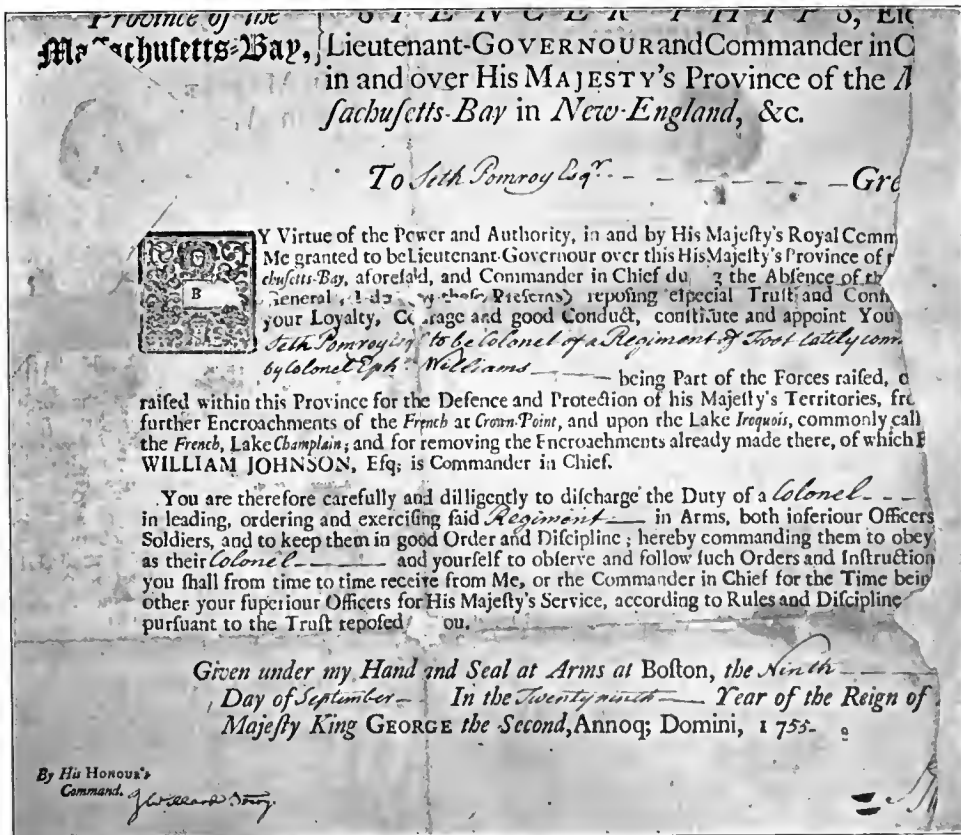 Province of the
Maſſachuſetts-Bay,
SPENCER PHIPS, Eſ
Lieutenant-GOVERNOUR and Commander in C
in and over His MAJESTY's Province of the M
ſachuſetts-Bay in New-England, &c.
To Seth Pomroy Esqr. - - - - - - Gre
BY Virtue of the Power and Authority, in and by His Majeſty's Royal Comm
Me granted to be Lieutenant-Governour over this His Majeſty's Province of
chuſetts-Bay, aforeſaid, and Commander in Chief du g the Abſence of th
General, I do by theſe Preſents reposing eſpecial Truſt and Conf
your Loyalty, Courage and good Conduct, conſtitute and appoint You
Seth Pomroy to be Colonel of a Regiment of Foot lately com
by Colonel Eph. Williams —— being Part of the Forces raiſed, o
raiſed within this Province for the Defence and Protection of his Majeſty's Territories, fro
further Encroachments of the French at Crown-Point, and upon the Lake Iroquois, commonly call
the French, Lake Champlain; and for removing the Encroachments already made there, of which
WILLIAM JOHNSON, Eſq; is Commander in Chief.
You are therefore carefully and dilligently to diſcharge the Duty of a Colonel - - -
in leading, ordering and exerciſing ſaid Regiment — in Arms, both inferiour Officers
Soldiers, and to keep them in good Order and Diſcipline; hereby commanding them to obey
as their Colonel —— and yourſelf to obſerve and follow ſuch Orders and Inſtruction
you ſhall from time to time receive from Me, or the Commander in Chief for the Time bein
other your ſuperiour Officers for His Majeſty's Service, according to Rules and Diſcipline
purſuant to the Truſt repoſed ou.
Given under my Hand and Seal at Arms at Boſton, the Ninth —
Day of September - In the Twenty ninth — Year of the Reign of
Majeſty King GEORGE the Second, Annoq; Domini, 1755-
By His HONOUR's
Command.
J Willard Secry.